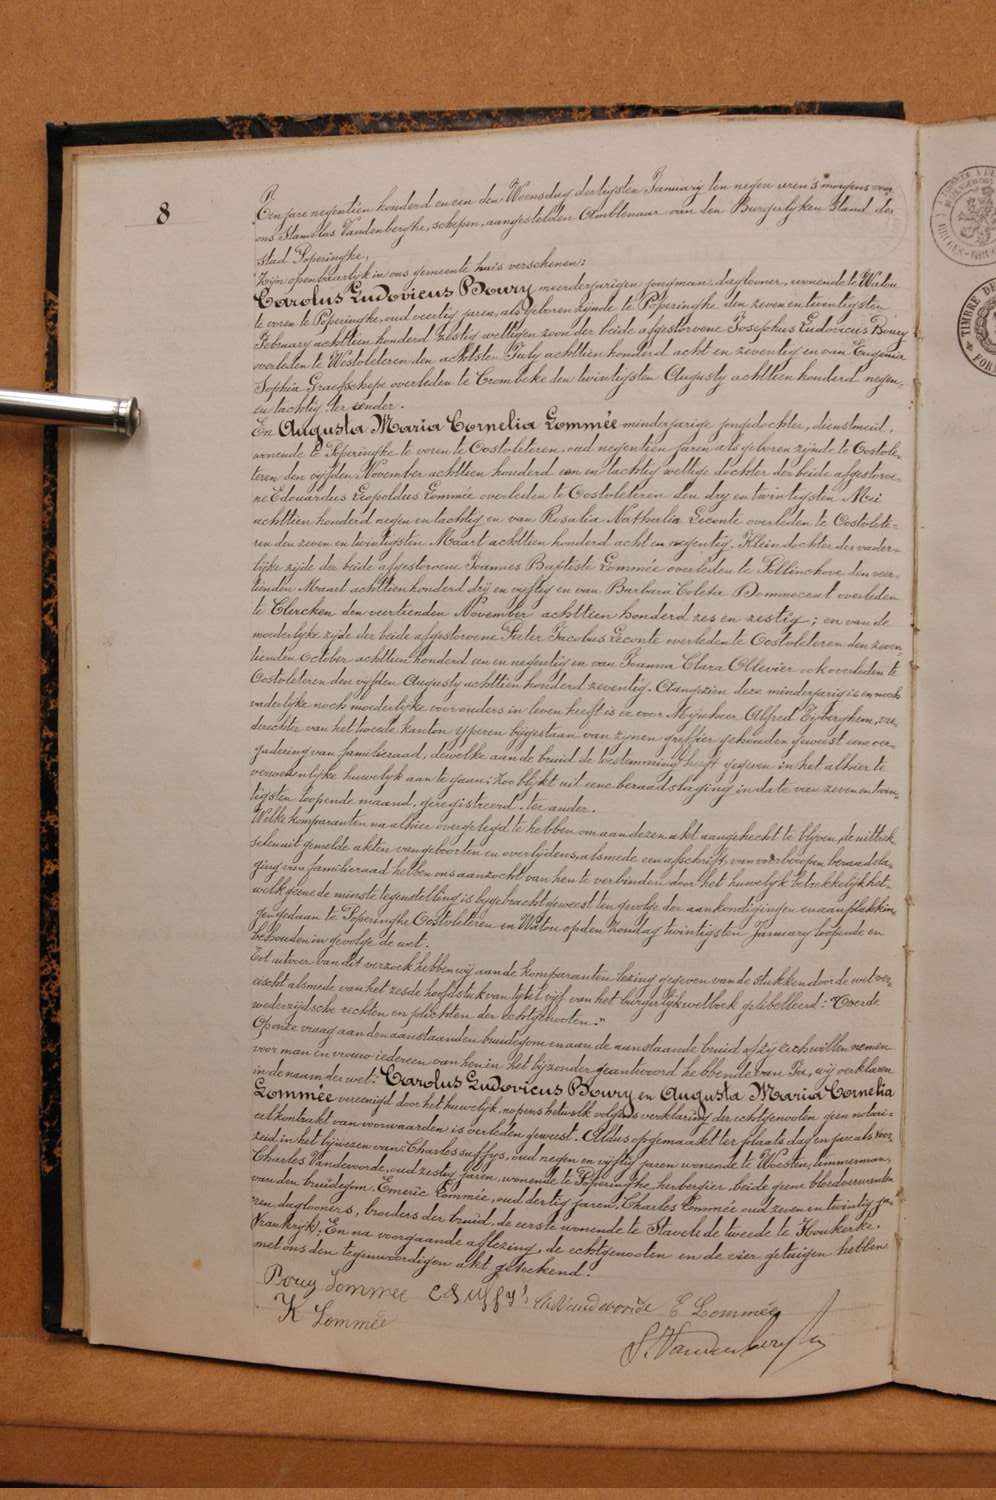 8
Een jare negentien honderd en een den Woensdag dertigsten January ten negen uren 's morgens voor
ons Stanislas Vandenberghe, schepen, aangestelden Ambtenaar van den Burgerlyken stand der
stad Poperinghe,
Zijn openbaarlyk in ons gemeente huis verschenen:
Carolus Ludovicus Boury meerderjarigen jongman, daglooner, wonende te Watou
te voren te Poperinghe, oud veertig jaren, als geboren zijnde te Poperinghe den zeven en twintigsten
February achttien honderd zestig wettigen zoon der beide afgestorvene Josephus Ludovicus Boury
overleden te Westvleteren den achtsten July achttien honderd acht en zeventig en van Eugenia
Sophia Graefschepe overleden te Crombeke den twintigsten Augusty achttien honderd negen
en tachtig ter eender.
En Augusta Maria Cornelia Lommée minderjarige jongedochter, dienstmeid,
wonende te Poperinghe te voren te Oostvleteren, oud negentien jaren als geboren zijnde te Oostvle-
teren den vijfden November achttien honderd een en tachtig wettige dochter der beide afgestorve-
ne Edouardus Leopoldus Lommée overleden te Oostvleteren den dry en twintigsten Mei
achttien honderd negen en tachtig en van Rosalia Nathalia Leconte overleden te Oostvlete-
ren den zeven en twintigsten Maart achttien honderd acht en negentig. Klein dochter der vader-
lijke zijde der beide afgestorvene Joannes Baptiste Lommée overleden te Pollinchove den veer-
tienden Maart achttien honderd drij en vijftig en van Barbara Coleta Dommecent overleden
te Clercken den veertienden November achttien honderd zes en zestig; en van de
moederlyke zijde der beide afgestorvene Pieter Jacobus Leconte overleden te Oostvleteren den zeven-
tienden October achttien honderd een en negentig en van Joanna Clara Ollevier ook overleden te
Oostvleteren den vijfden Augusty achttien honderd zeventig. Aangezien deze minderjarig is en noch
vaderlyke noch moederlyke voorouders in leven heeft is er voor Mijnheer Alfred Tyberghem, vre-
derechter van het tweede kanton Yperen bijgestaan van zijnen griffier gehouden geweest eene ver-
gadering van familieraad, dewelke aan de bruid de toestemming heeft gegeven in het alhier te
verwezenlijke huwelijk aan te gaan; Zoo blijkt uit eene beraadslaging in date van zeven en twin-
tigsten loopende maand, geregistreerd, ter ander.
Welke komparanten na alhier overgelegd te hebben om aan dezen akt aangehecht te blijven, de uittrek
selen uit gemelde akten van geboorten en overlijdens, alsmede een afschrift van voorberoepen beraadsla-
ging van familieraad hebben ons aanzocht van hen te verbinden door het huwelyk betrekkelijk het-
welk geene de minste tegenstelling is bygebracht geweest ten gevolge der aankondigingen en aanplakkin-
gen gedaan te Poperinghe Oostvleteren en Watou op den Zondag twintigsten January loopende en
behouden in gevolge de wet.
Tot uitvoer van dit verzoek hebben wij aan de komparanten lezing gegeven van de stukken door de wet ver-
eischt alsmede van het zesde hoofdstuk van tytel vijf van het burgerlijk wetboek gelibelleerd: "Over de
wederzijdsche rechten en plichten der echtgenooten."
Op onze vraag aan den aanstaanden bruidegom en aan de aanstaande bruid of zij zich willen nemen
voor man en vrouw iedereen van hen in het bijzonder geantwoord hebbende van Ja, wij verklaren
in de naam der wet: Carolus Ludovicus Boury en Augusta Maria Cornelia
Lommée vereenigd door het huwelijk, nopens hetwelk volgens verklaring der echtgenooten geen notari-
eel kontrakt van voorwaarden is verleden geweest. Aldus opgemaakt ter plaats dag en jare als voor-
zeid, in het bijwezen van: Charles Suffys, oud negen en vijftig jaren wonende te Woesten, timmerman,
Charles Vandevoorde, oud zestig jaren, wonende te Poperinghe, herbergier, beide geene bloedverwanten
van den bruidegom, Emeric Lommée, oud dertig jaren, Charles Lommée oud zeven en twintig ja-
ren, daglooners, broeders der bruid, de eerste wonende te Stavele de tweede te Houtkerke.
(Frankrijk); En na voorgaande aflezing, de echtgenooten en de vier getuigen hebben
met ons den tegenwoordigen akt geteekend.
Boury Lommee C Suffys Ch Vandevoorde E Lommée
K Lommée
S. Vandenberghe